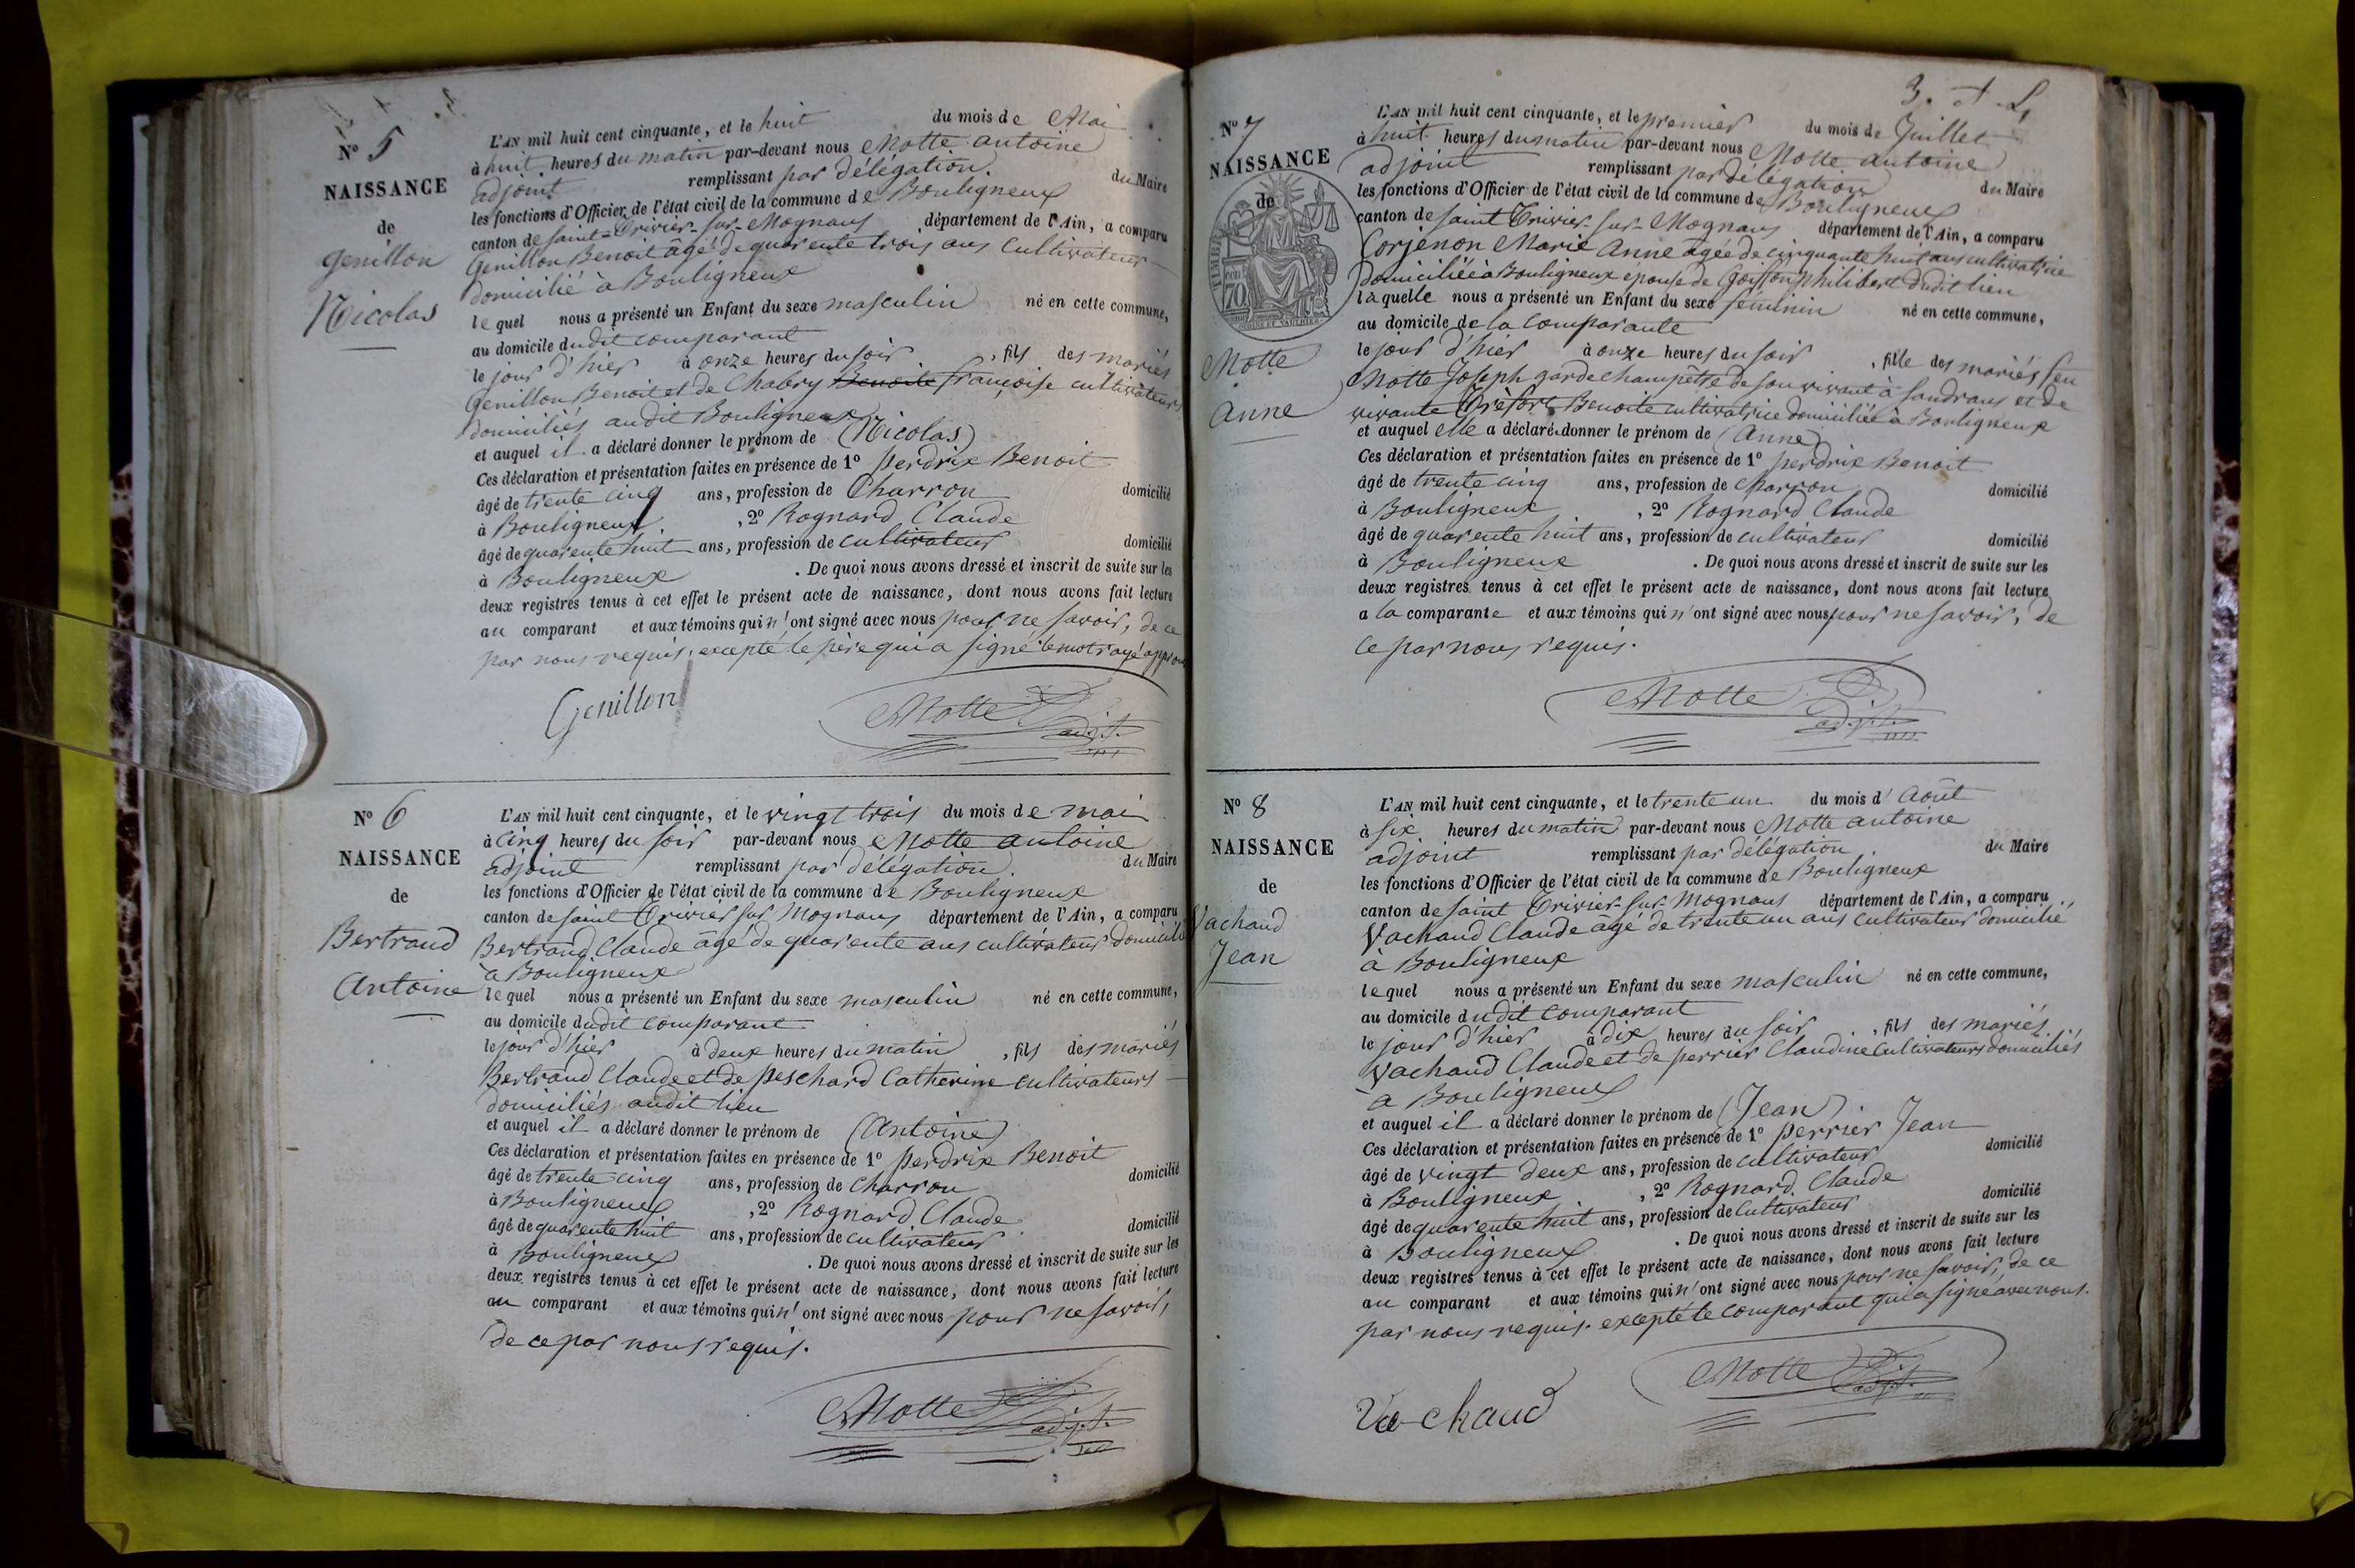 N° 5
NAISSANCE
de
Genillon
Nicolas
L'AN mil huit cent cinquante, et le huit du mois de Mai
à huit heures du matin par-devant nous Motte antoine
adjoint remplissant par délégation. du Maire
les fonctions d'Officier de l'état civil de la commune de Bouligneux
canton de saint-Trivier-sur-Mognans département de l'Ain, a comparu
Genillon Benoit âgé de quarente trois ans cultivateur
domicilié à Bouligneux
lequel nous a présenté un Enfant du sexe masculin né en cette commune,
au domicile dudit comparant
le jour d'hier à onze heures du soir, fils des mariés
Genillon Benoit et de Chabry Benoite françoise cultivateurs
domiciliés audit Bouligneux
et auquel il a déclaré donner le prénom de (Nicolas)
Ces déclaration et présentation faites en présence de 1° perdrix Benoit
âgé de trente cinq ans, profession de Charron domicilié
à Bouligneux, 2° Rognard Claude
âgé de quarente huit ans, profession de cultivateur domicilié
à Bouligneux. De quoi nous avons dressé et inscrit de suite sur les
deux registres tenus à cet effet le présent acte de naissance, dont nous avons fait lecture
au comparant et aux témoins qui n'ont signé avec nous pour ne savoir, de ce
par nous requis. excepté le père qui a signé le mot rayé
Genillon Motte adjt.
N° 6
NAISSANCE
de
Bertrand
Antoine
L'AN mil huit cent cinquante, et le vingt trois du mois de mai
à cinq heures du soir par-devant nous Motte antoine
adjoint remplissant par délégation. du Maire
les fonctions d'Officier de l'état civil de la commune de Bouligneux
canton de saint Trivier sur Mognans département de l'Ain, a comparu
Bertrand Claude âgé de quarente ans cultivateur domicilié
à Bouligneux
lequel nous a présenté un Enfant du sexe masculin né en cette commune,
au domicile dudit comparant
le jour d'hier à deux heures du matin, fils des mariés
Bertrand Claude et de peschard Catherine cultivateurs
domiciliés audit lieu
et auquel il a déclaré donner le prénom de (Antoine)
Ces déclaration et présentation faites en présence de 1° perdrix Benoit
âgé de trente cinq ans, profession de Charron domicilié
à Bouligneux, 2° Rognard Claude
âgé de quarente huit ans, profession de cultivateur domicilié
à Bouligneux. De quoi nous avons dressé et inscrit de suite sur les
deux registres tenus à cet effet le présent acte de naissance, dont nous avons fait lecture
au comparant et aux témoins qui n'ont signé avec nous pour ne savoir,
de ce par nous requis.
Motte adjt.
N° 7
NAISSANCE
de
Motte
Anne
L'AN mil huit cent cinquante, et le premier du mois de Juillet
à huit heures du matin par-devant nous Motte antoine
adjoint remplissant par délégation du Maire
les fonctions d'Officier de l'état civil de la commune de Bouligneux
canton de saint Trivier-sur-Mognans département de l'Ain, a comparu
Corjenon Marie Anne âgée de cinquante huit ans cultivatrice
domiciliée à Bouligneux épouse de philibert dudit lieu
laquelle nous a présenté un Enfant du sexe féminin né en cette commune,
au domicile de la comparante
le jour d'hier à onze heures du soir, fille des mariés feu
Motte Joseph garde champêtre de son vivant à Sandrans et de
vivante Trèfort Benoite cultivatrice domiciliée à Bouligneux
et auquel elle a déclaré donner le prénom de (Anne)
Ces déclaration et présentation faites en présence de 1° perdrix Benoit
âgé de trente cinq ans, profession de charron domicilié
à Bouligneux, 2° Rognard Claude
âgé de quarente huit ans, profession de cultivateur domicilié
à Bouligneux. De quoi nous avons dressé et inscrit de suite sur les
deux registres tenus à cet effet le présent acte de naissance, dont nous avons fait lecture
a la comparante et aux témoins qui n'ont signé avec nous pour ne savoir, de
ce par nous requis.
Motte adjt.
N° 8
NAISSANCE
de
Vachaud
Jean
L'AN mil huit cent cinquante, et le trente un du mois d'Août
à six heures du matin par-devant nous Motte antoine
adjoint remplissant par délégation du Maire
les fonctions d'Officier de l'état civil de la commune de Bouligneux
canton de saint Trivier-sur-Mognans département de l'Ain, a comparu
Vachaud Claude âgé de trente un ans cultivateur domicilié
à Bouligneux
lequel nous a présenté un Enfant du sexe masculin né en cette commune,
au domicile dudit comparant
le jour d'hier à dix heures du soir, fils des mariés
Vachaud Claude et de perrier Claudine cultivateurs domiciliés
à Bouligneux
et auquel il a déclaré donner le prénom de (Jean)
Ces déclaration et présentation faites en présence de 1° perrier Jean
âgé de vingt deux ans, profession de cultivateur domicilié
à Bouligneux, 2° Rognard Claude
âgé de quarente huit ans, profession de cultivateur domicilié
à Bouligneux. De quoi nous avons dressé et inscrit de suite sur les
deux registres tenus à cet effet le présent acte de naissance, dont nous avons fait lecture
au comparant et aux témoins qui n'ont signé avec nous pour ne savoir, de ce
par nous requis. excepté le comparant qui a signé avec nous.
Vachaud Motte adjt.